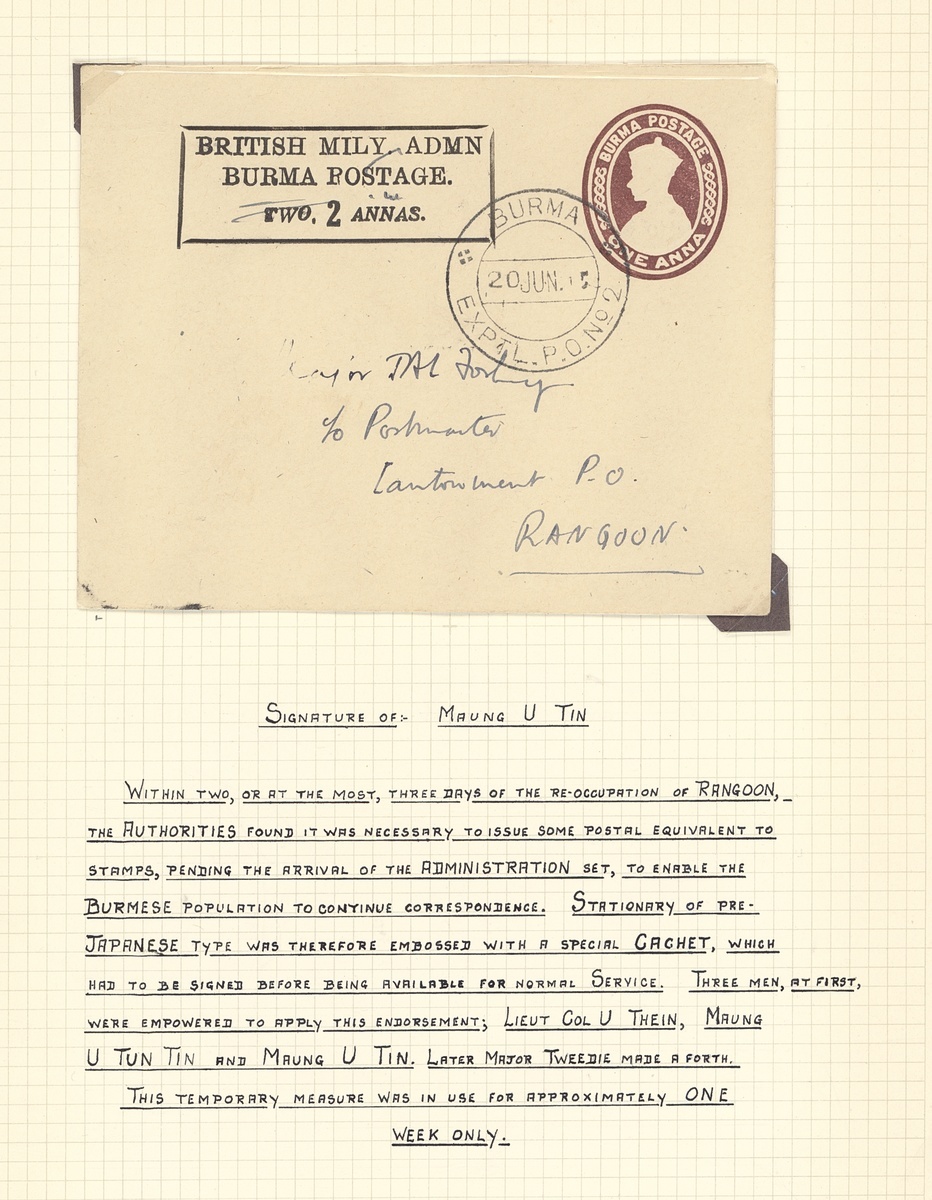 BRITISH MILY. ADMN
BURMA POSTAGE.
TWO. 2 ANNAS.
BURMA POSTAGE
ONE ANNA
BURMA
20 JUN.
EXPTL. P.O. No 2
Major
c/o Postmaster
Cantonment P.O.
RANGOON.
SIGNATURE OF:- MAUNG U TIN
WITHIN TWO, OR AT THE MOST, THREE DAYS OF THE RE-OCCUPATION OF RANGOON,
THE AUTHORITIES FOUND IT WAS NECESSARY TO ISSUE SOME POSTAL EQUIVALENT TO
STAMPS, PENDING THE ARRIVAL OF THE ADMINISTRATION SET, TO ENABLE THE
BURMESE POPULATION TO CONTINUE CORRESPONDENCE. STATIONARY OF PRE-
JAPANESE TYPE WAS THEREFORE EMBOSSED WITH A SPECIAL CACHET, WHICH
HAD TO BE SIGNED BEFORE BEING AVAILABLE FOR NORMAL SERVICE. THREE MEN, AT FIRST,
WERE EMPOWERED TO APPLY THIS ENDORSEMENT; LIEUT COL U THEIN, MAUNG
U TUN TIN AND MAUNG U TIN. LATER MAJOR TWEEDIE MADE A FORTH.
THIS TEMPORARY MEASURE WAS IN USE FOR APPROXIMATELY ONE
WEEK ONLY.